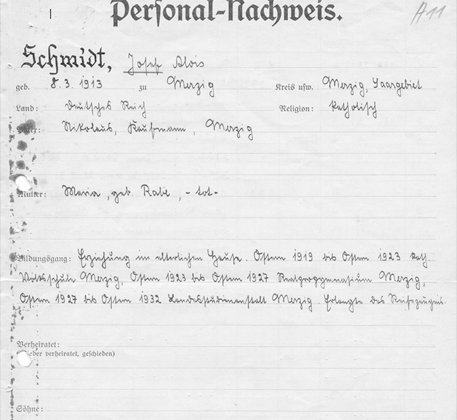 Personal-Nachweis.
A 11
Schmidt, Josef Alois
geb. 8.3.1913 zu Merzig Kreis usw. Merzig, Saargebiet
Land: Deutsches Reich Religion: katholisch
Nikolaus, Kaufmann, Merzig
Mutter: Maria, geb. Rabe, - tot -
Bildungsgang: Erziehung im elterlichen Hause. Ostern 1919 bis Ostern 1923 kath.
Volksschule Merzig, Ostern 1923 bis Ostern 1927 Realprogymnasium Merzig,
Ostern 1927 bis Ostern 1932 Landesstudienanstalt Merzig. Erlangte das Reifezeugnis.
Verheiratet:
(oder verheiratet, geschieden)
Söhne: